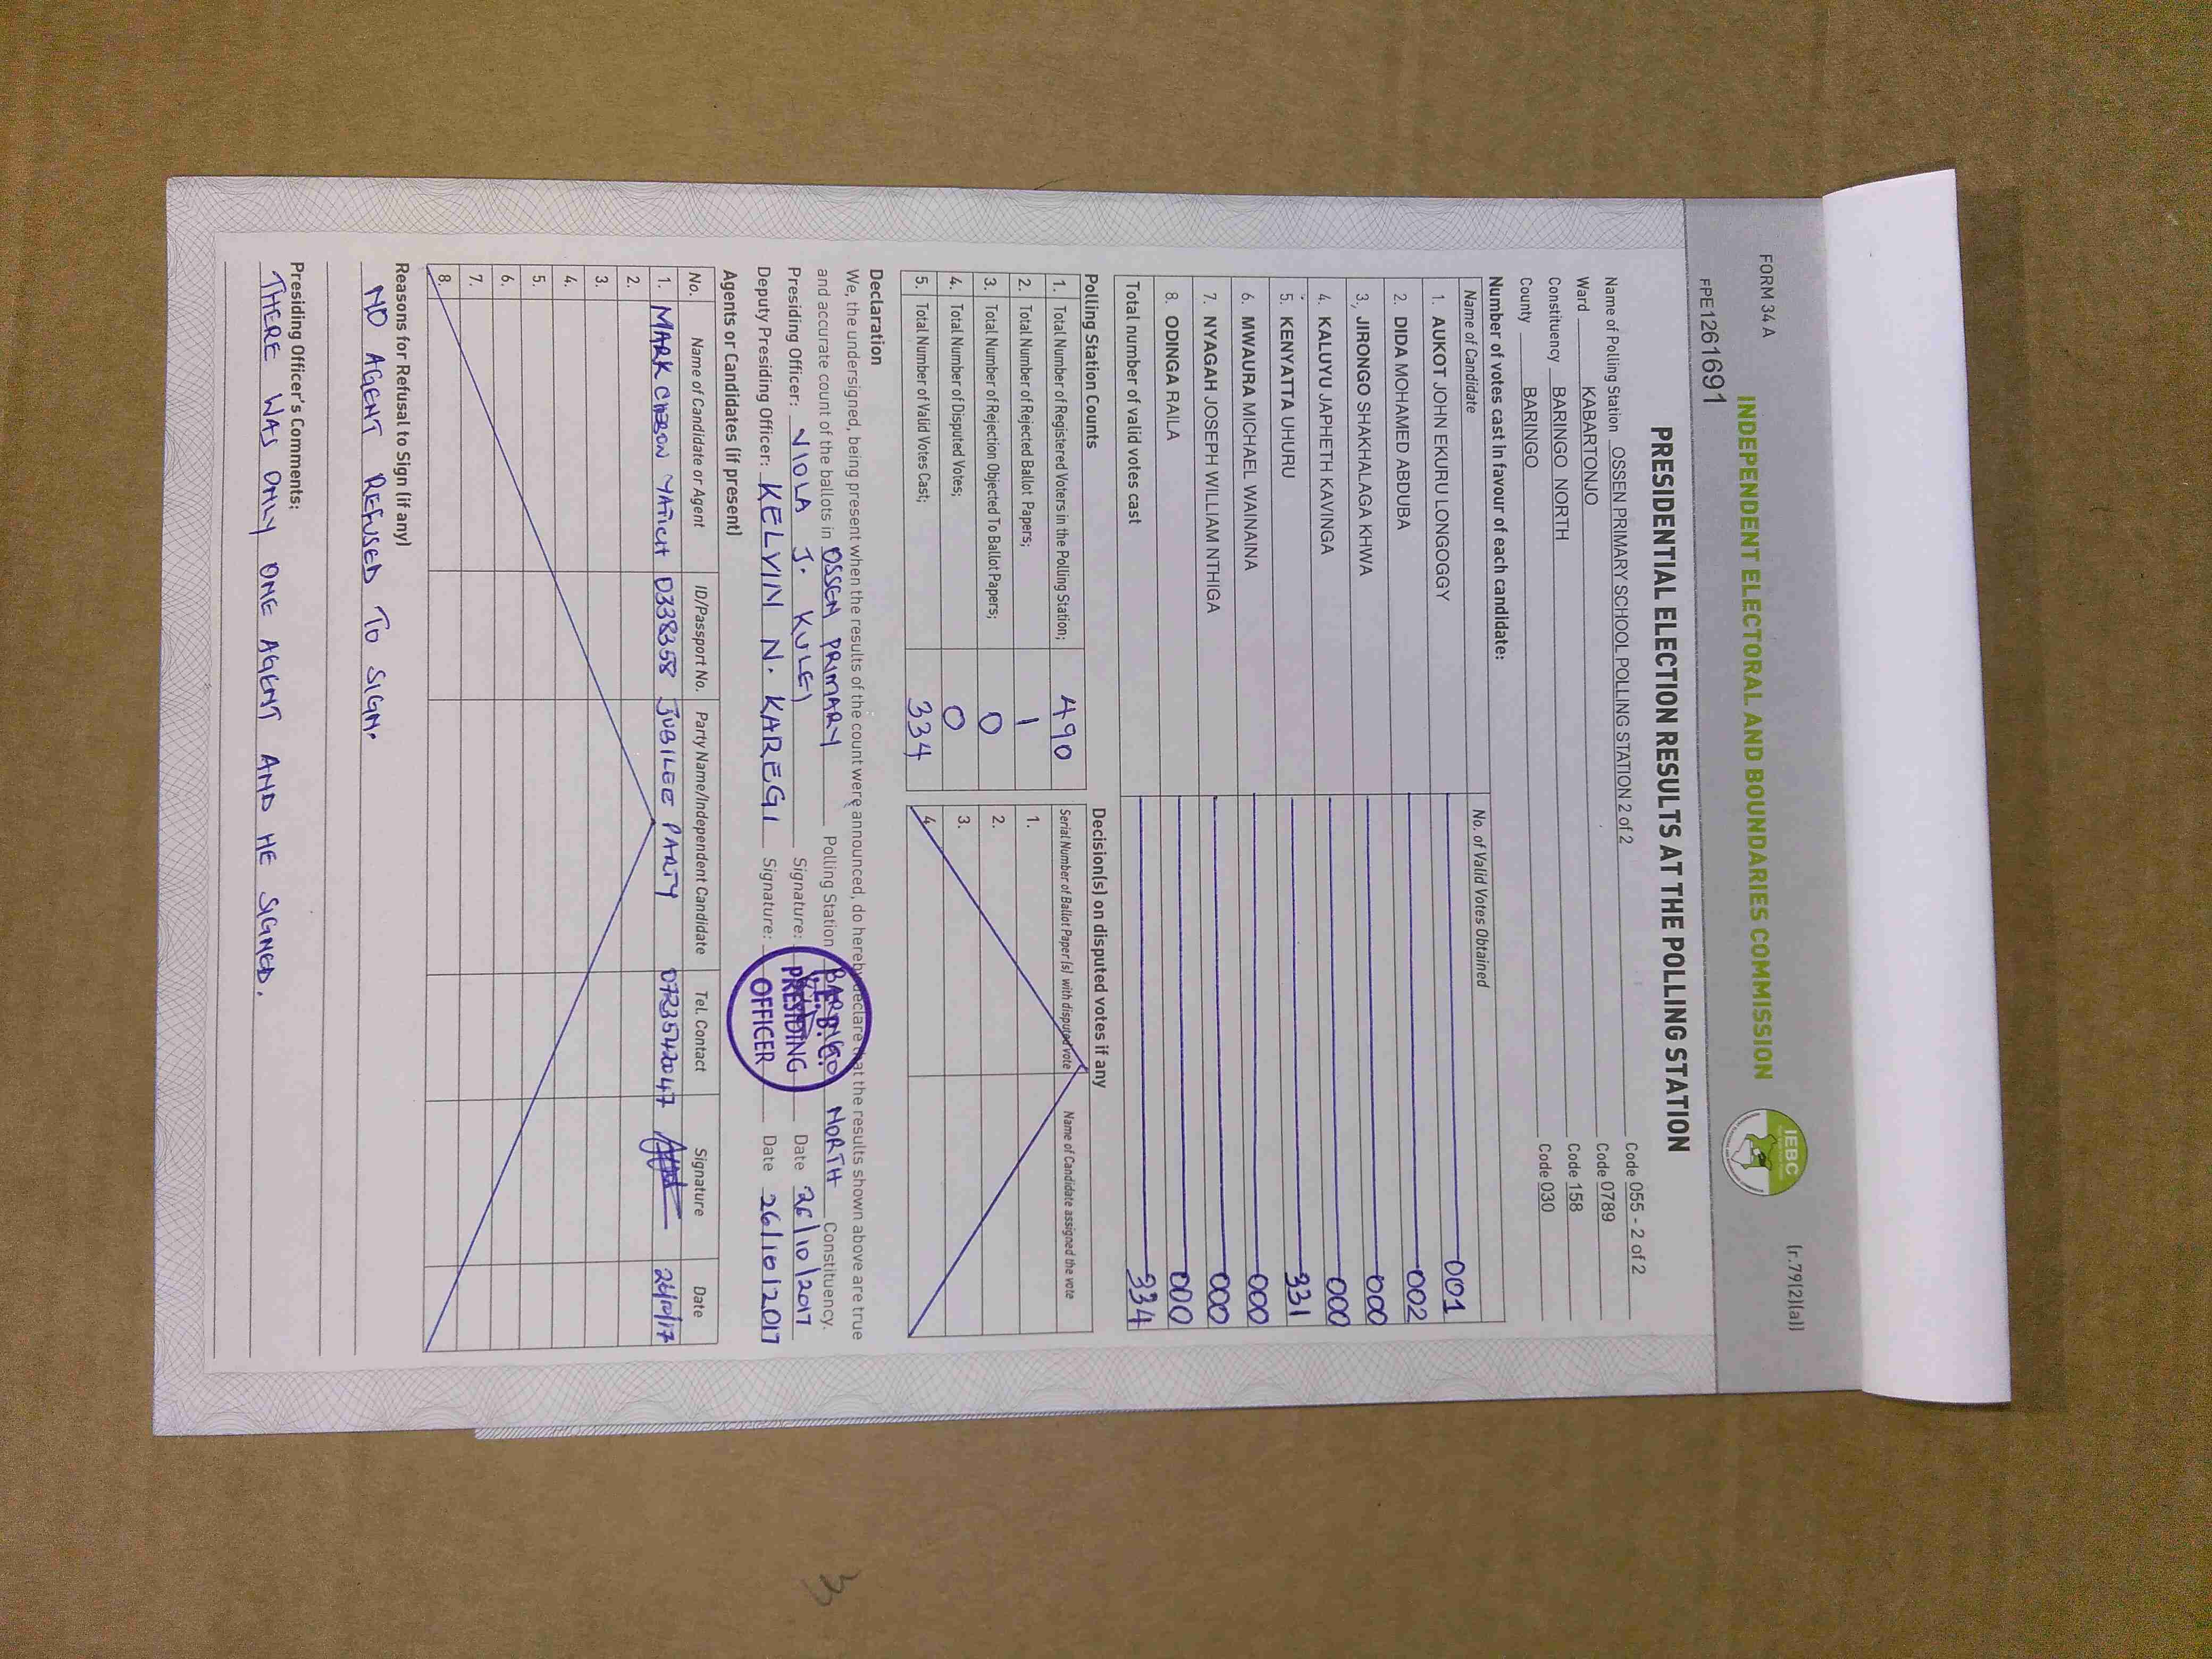 FORM 34 A
(r.79(2)(a))
INDEPENDENT ELECTORAL AND BOUNDARIES COMMISSION
IEBC
FPE1261691
PRESIDENTIAL ELECTION RESULTS AT THE POLLING STATION
Name of Polling Station OSSEN PRIMARY SCHOOL POLLING STATION 2 of 2 Code 055 - 2 of 2
Ward KABARTONJO Code 0789
Constituency BARINGO NORTH Code 158
County BARINGO Code 030
Number of votes cast in favour of each candidate:
Name of Candidate No. of Valid Votes Obtained
1. AUKOT JOHN EKURU LONGOGGY 001
2. DIDA MOHAMED ABDUBA 002
3. JIRONGO SHAKHALAGA KHWA 000
4. KALUYU JAPHETH KAVINGA 000
5. KENYATTA UHURU 331
6. MWAURA MICHAEL WAINAINA 000
7. NYAGAH JOSEPH WILLIAM NTHIGA 000
8. ODINGA RAILA 000
Total number of valid votes cast 334
Polling Station Counts
1. Total Number of Registered Voters in the Polling Station; 490
2. Total Number of Rejected Ballot Papers; 1
3. Total Number of Rejection Objected To Ballot Papers; 0
4. Total Number of Disputed Votes; 0
5. Total Number of Valid Votes Cast; 334
Decision(s) on disputed votes if any
Serial Number of Ballot Paper (s) with disputed vote Name of Candidate assigned the vote
1.
2.
3.
4.
Declaration
We, the undersigned, being present when the results of the count were announced, do hereby declare that the results shown above are true
and accurate count of the ballots in OSSEN PRIMARY Polling Station BARINGO NORTH Constituency.
Presiding Officer: VIOLA J. KULEI Signature: Date 26/10/2017
Deputy Presiding Officer: KELVIN N. KAREGI Signature: Date 26/10/2017
I.E.B.C.
PRESIDING
OFFICER
Agents or Candidates (if present)
No. Name of Candidate or Agent ID/Passport No. Party Name/Independent Candidate Tel. Contact Signature Date
1. MARK YATICH D338358 JUBILEE PARTY 26/10/17
2.
3.
4.
5.
6.
7.
8.
Reasons for Refusal to Sign (if any)
NO AGENT REFUSED TO SIGN.
Presiding Officer's Comments:
THERE WAS ONLY ONE AGENT AND HE SIGNED.
3